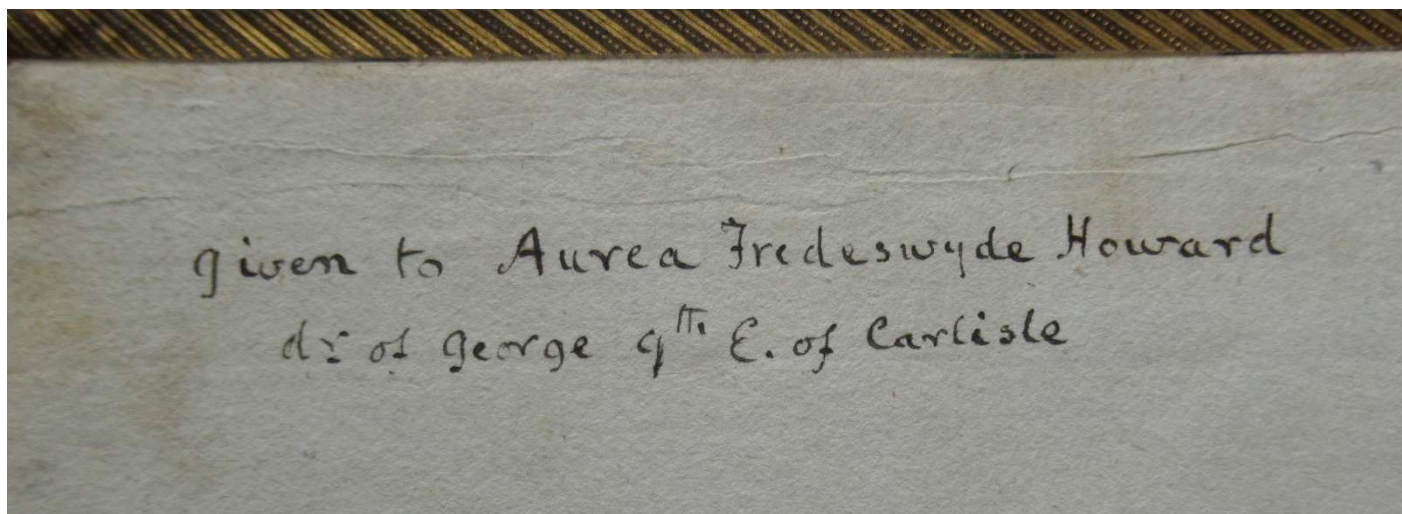 given to Aurea Fredeswyde Howard
dr of George 9th E. of Carlisle